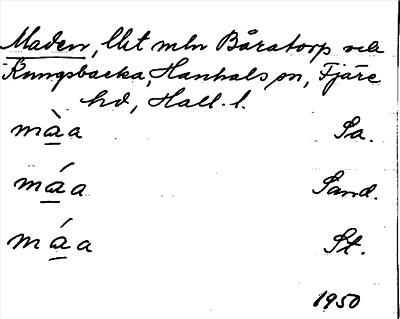 Maden, llet mln Båratorp och
Kungsbacka, Hanhals sn, Fjäre
hd, Hall. l.
màa Sa.
máa Sand.
máa St.
1950